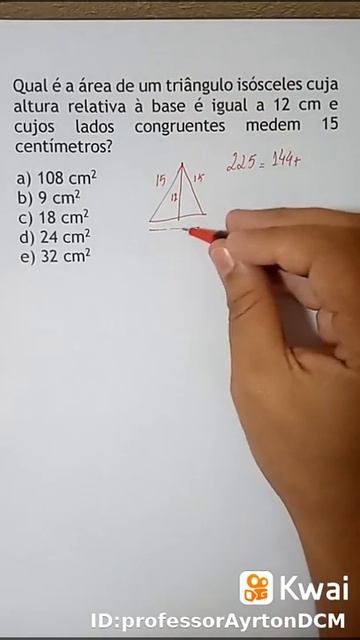 Qual é a área de um triângulo isósceles cuja
altura relativa à base é igual a 12 cm e
cujos lados congruentes medem 15
centímetros?
225 = 144+
a) 108 cm²
15
15
b) 9 cm²
12
c) 18 cm²
d) 24 cm²
e) 32 cm²
Kwai
ID:professorAyrtonDCM